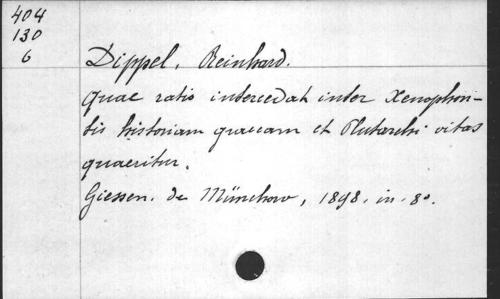 404
130
6
Dippel, Reinhard.
Quae ratio intercedat inter Xenophon-
tis historiam graecam et Plutarchi vitas
quaeritur.
Giessen. de Münchow, 1898. in-8o.